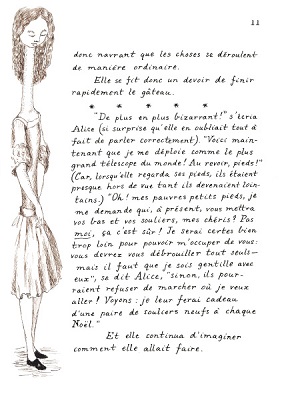 11
donc navrant que les choses se déroulent
de manière ordinaire.
Elle se fit donc un devoir de finir
rapidement le gâteau.
* * * * *
"De plus en plus bizarrant!" s'écria
Alice (si surprise qu'elle en oubliait tout à
fait de parler correctement). "Voici main-
tenant que je me déploie comme le plus
grand télescope du monde! Au revoir, pieds!"
(Car, lorsqu'elle regarda ses pieds, ils étaient
presque hors de vue tant ils devenaient loin-
tains.) "Oh! mes pauvres petits pieds, je
me demande qui, à présent, vous mettra
vos bas et vos souliers, mes chéris? Pas
moi, ça c'est sûr! Je serai certes bien
trop loin pour pouvoir m'occuper de vous:
vous devrez vous débrouiller tout seuls—
mais il faut que je sois gentille avec
eux", se dit Alice, "sinon, ils pour-
raient refuser de marcher où je veux
aller! Voyons: je leur ferai cadeau
d'une paire de souliers neufs à chaque
Noël."
Et elle continua d'imaginer
comment elle allait faire.